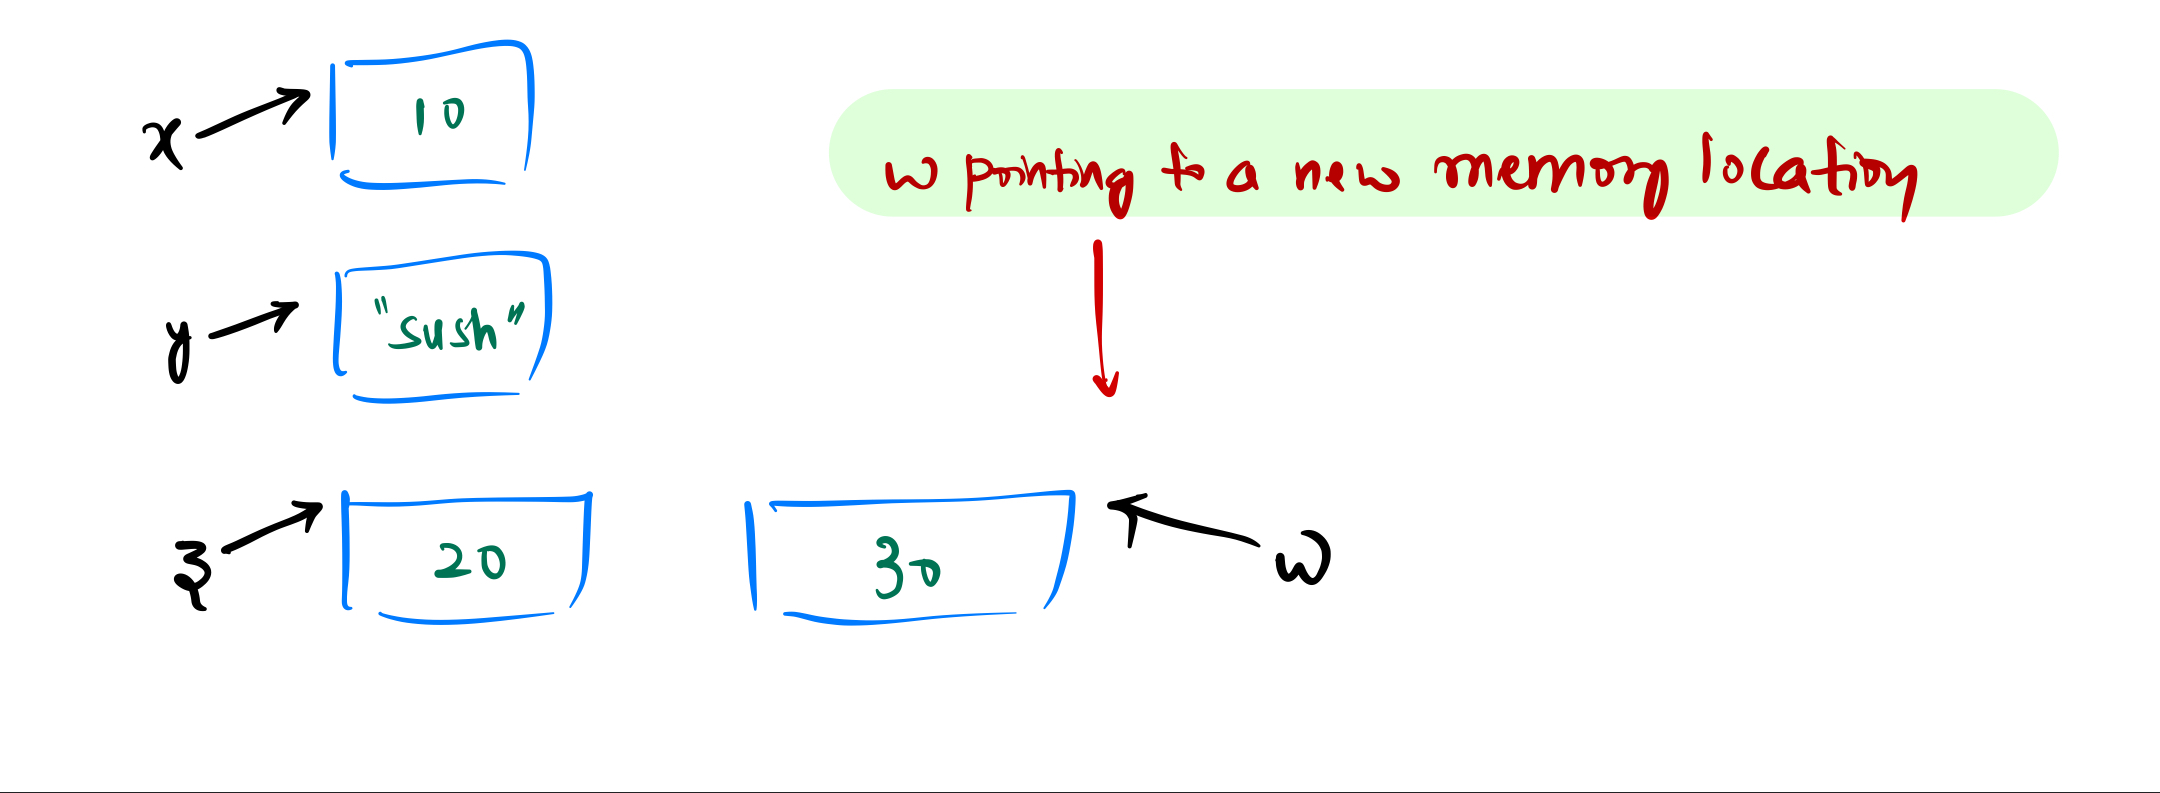 x 10
w pointing to a new memory location
y "sush"
z 20 30 w